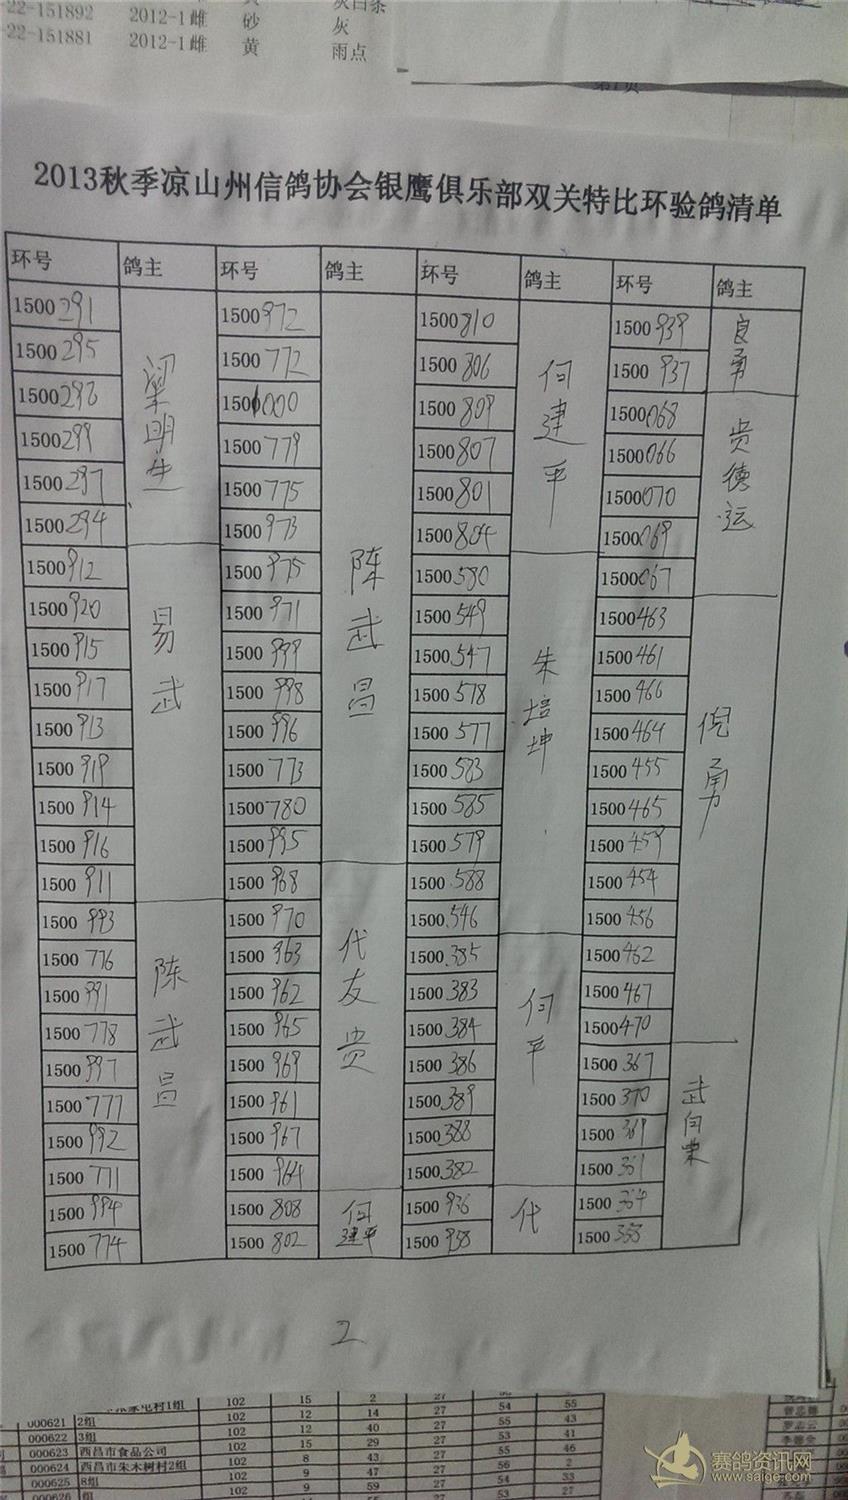 22-151892 2012-1雌 砂 灰白条
-22-151881 2012-1雌 黄 灰
雨点
2013秋季凉山州信鸽协会银鹰俱乐部双关特比环验鸽清单
环号 鸽主 环号 鸽主 环号 鸽主 环号 鸽主
1500291 梁明生 1500972 陈武昌 1500810 何建平 1500939 良勇
1500295 1500772 1500806 1500937
1500296 1501000 1500809 1500068 贵德运
1500299 1500779 1500807 1500066
1500297 1500775 1500801 1500070
1500294 1500973 1500804 1500069
1500912 易武 1500975 1500580 朱培坤 1500067
1500920 1500971 1500549 1500463 倪勇
1500915 1500999 1500547 1500461
1500917 1500998 1500578 1500466
1500913 1500996 1500577 1500464
1500919 1500773 1500583 1500455
1500914 1500780 1500585 1500465
1500916 1500995 1500579 1500459
1500911 1500968 代友贵 1500588 1500454
1500993 陈武昌 1500970 1500546 1500456
1500776 1500963 1500385 何平 1500462
1500991 1500962 1500383 1500467
1500778 1500965 1500384 1500470
1500997 1500969 1500386 1500367 武向荣
1500777 1500961 1500389 1500370
1500992 1500967 1500388 1500369
1500771 1500964 1500382 1500361
1500994 1500808 何建平 1500936 代 1500364
1500774 1500802 1500938 1500
2
村1组 102 15 2 27
000621 2组 102 12 14 27 54 55
000622 3组 102 12 40 27 55 43
000623 西昌市食品公司 102 15 29 27 53 41
000624 西昌市朱木树村2组 102 8 43 27 55 46
000625 8组 102 9 47 27 56 2
000626 组 102 9 59 27 54 33
53 27
赛鸽资讯网
www.saige.com